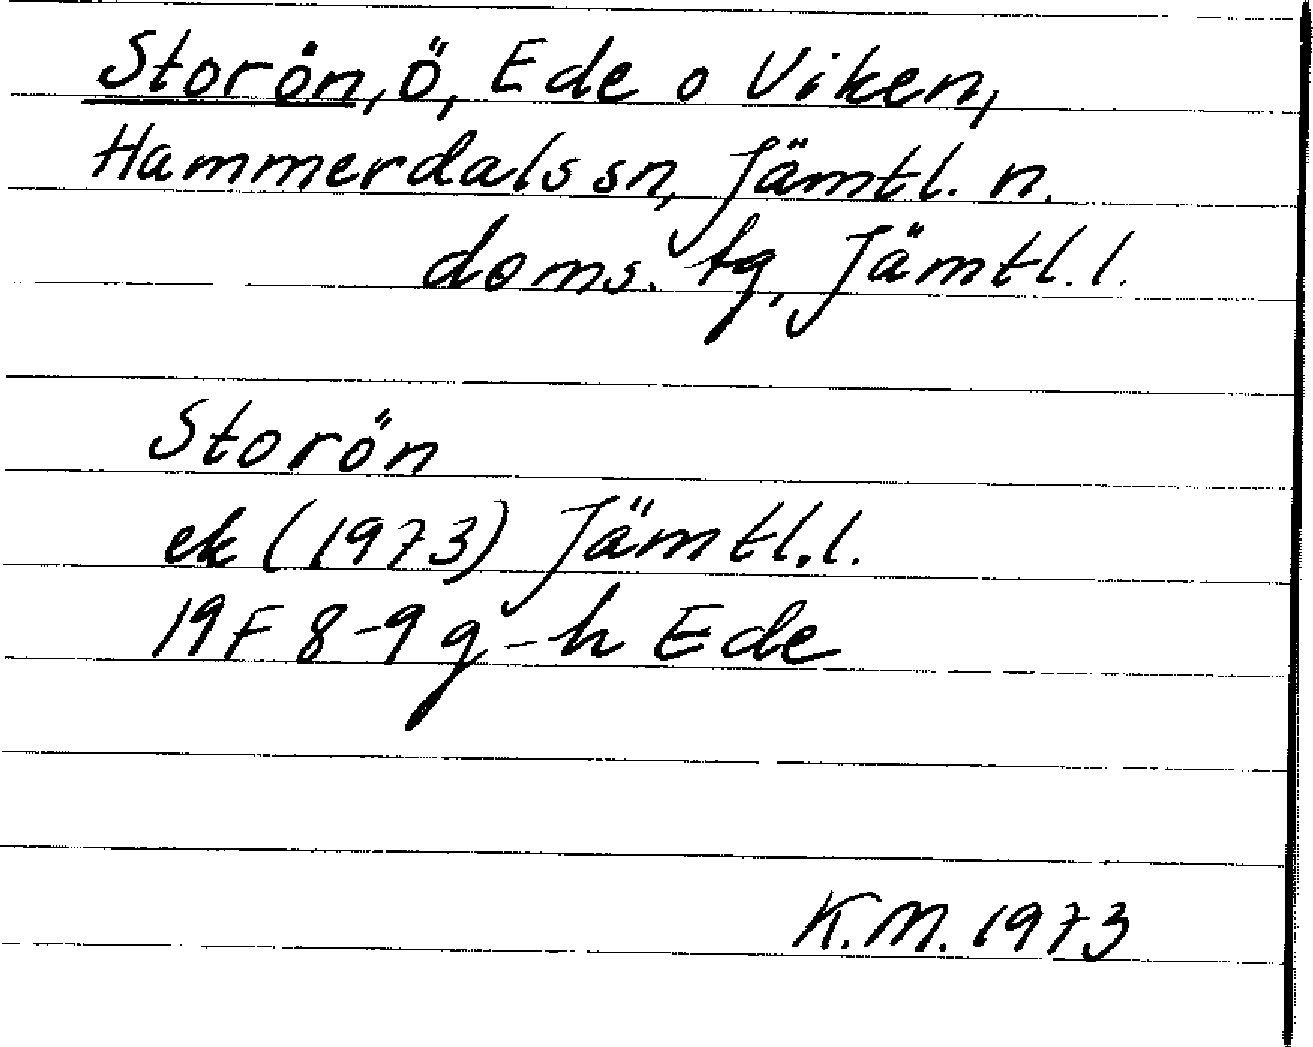 Storön, Ö, Ede o Viken,
Hammerdals sn, Jämtl. n.
doms. tg, Jämtl. l.
Storön
ek (1973) Jämtl. l.
19F 8-9 g-h Ede
K.M. 1973